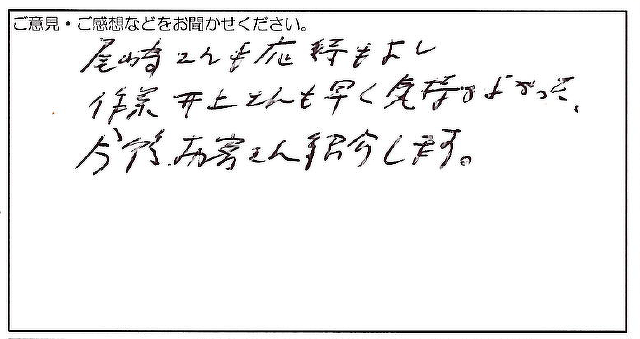 ご意見・ご感想などをお聞かせください。
尾崎さんも応待もよし
作業井上さんも早く気持がよかった、
今後お客さん紹介します。